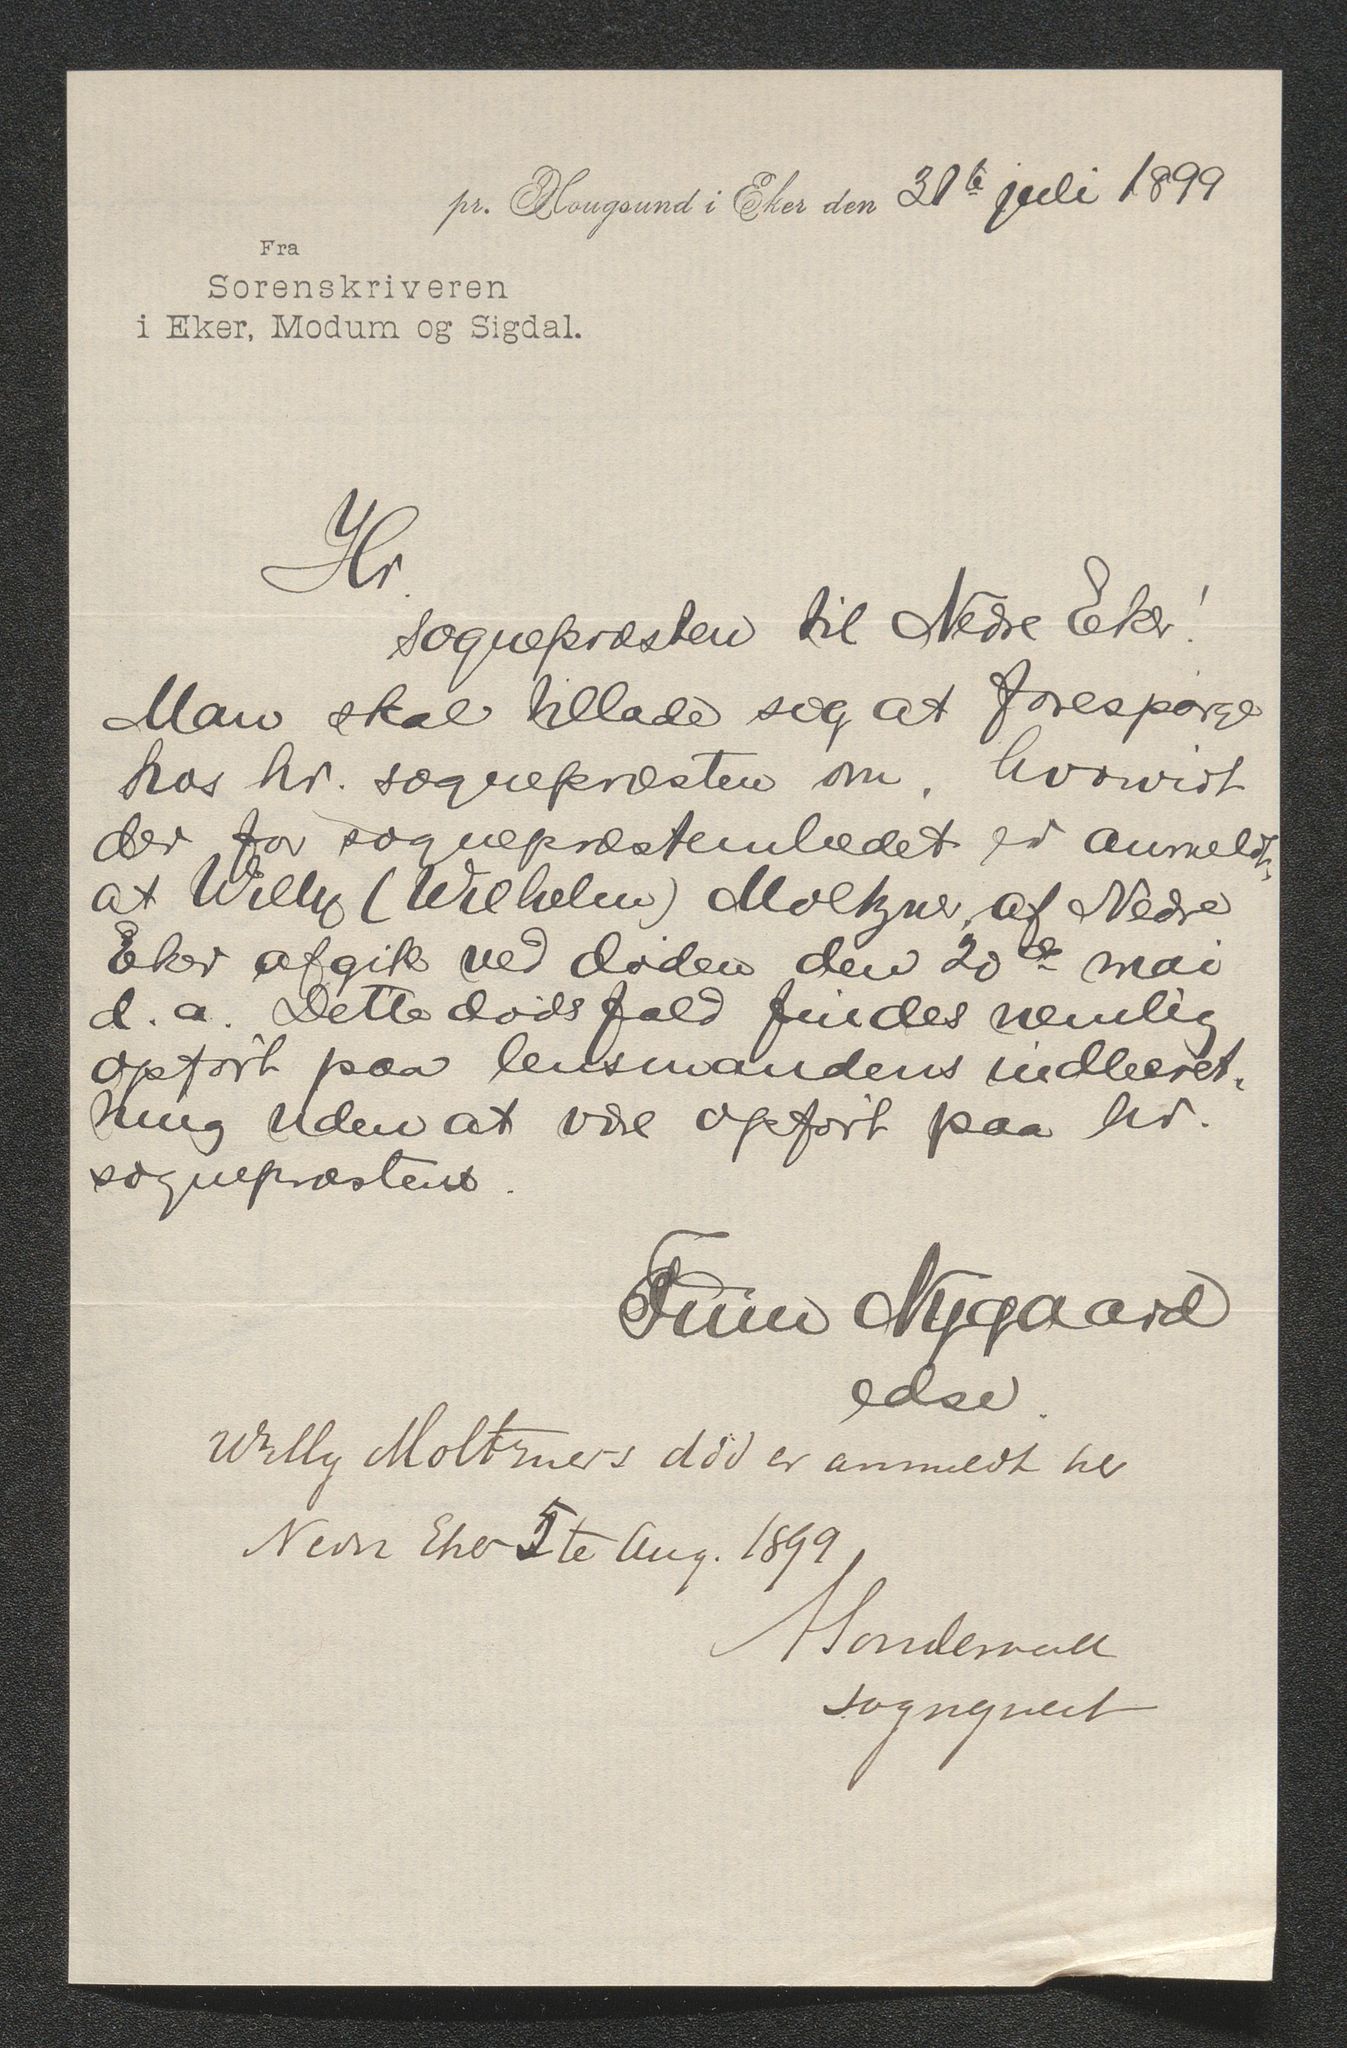 pr. Hougsund i Eker den 31te juli 1899
Fra
Sorenskriveren
i Eker, Modum og Sigdal.
Hr.
sognepræsten til Nedre Eker!
Man skal tillade sig at forespørge
hos hr. sognepræsten om, hvorvidt
der for sognepræstembedet er anmeldt,
at Willy (Wilhelm) Moltzner, af Nedre
Eker afgik ved døden den 20de mai
d. a. Dette dødsfald findes nemlig
opført paa lensmandens indberet-
ning uden at være opført paa hr.
sognepræstens.
Finn Nygaard
edsv.
Willy Moltzners død er anmeldt her
Nedre Eker 5te Aug. 1899
sognepræst